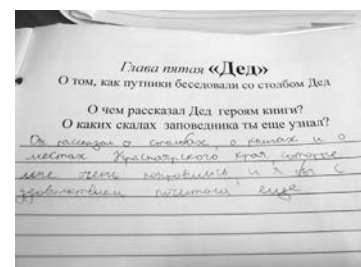 Глава пятая «Дед»
О том, как путники беседовали со столбом Дед
О чем рассказал Дед героям книги?
О каких скалах заповедника ты еще узнал?
Он рассказал о столбах, о книгах и о
местах Красноярского края, которые
мне очень понравились и я бы с
удовольствием почитала еще